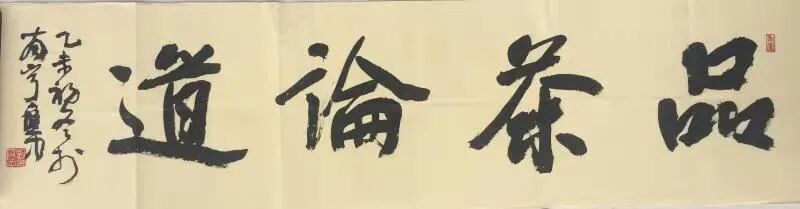 品茶論道
乙未初冬於